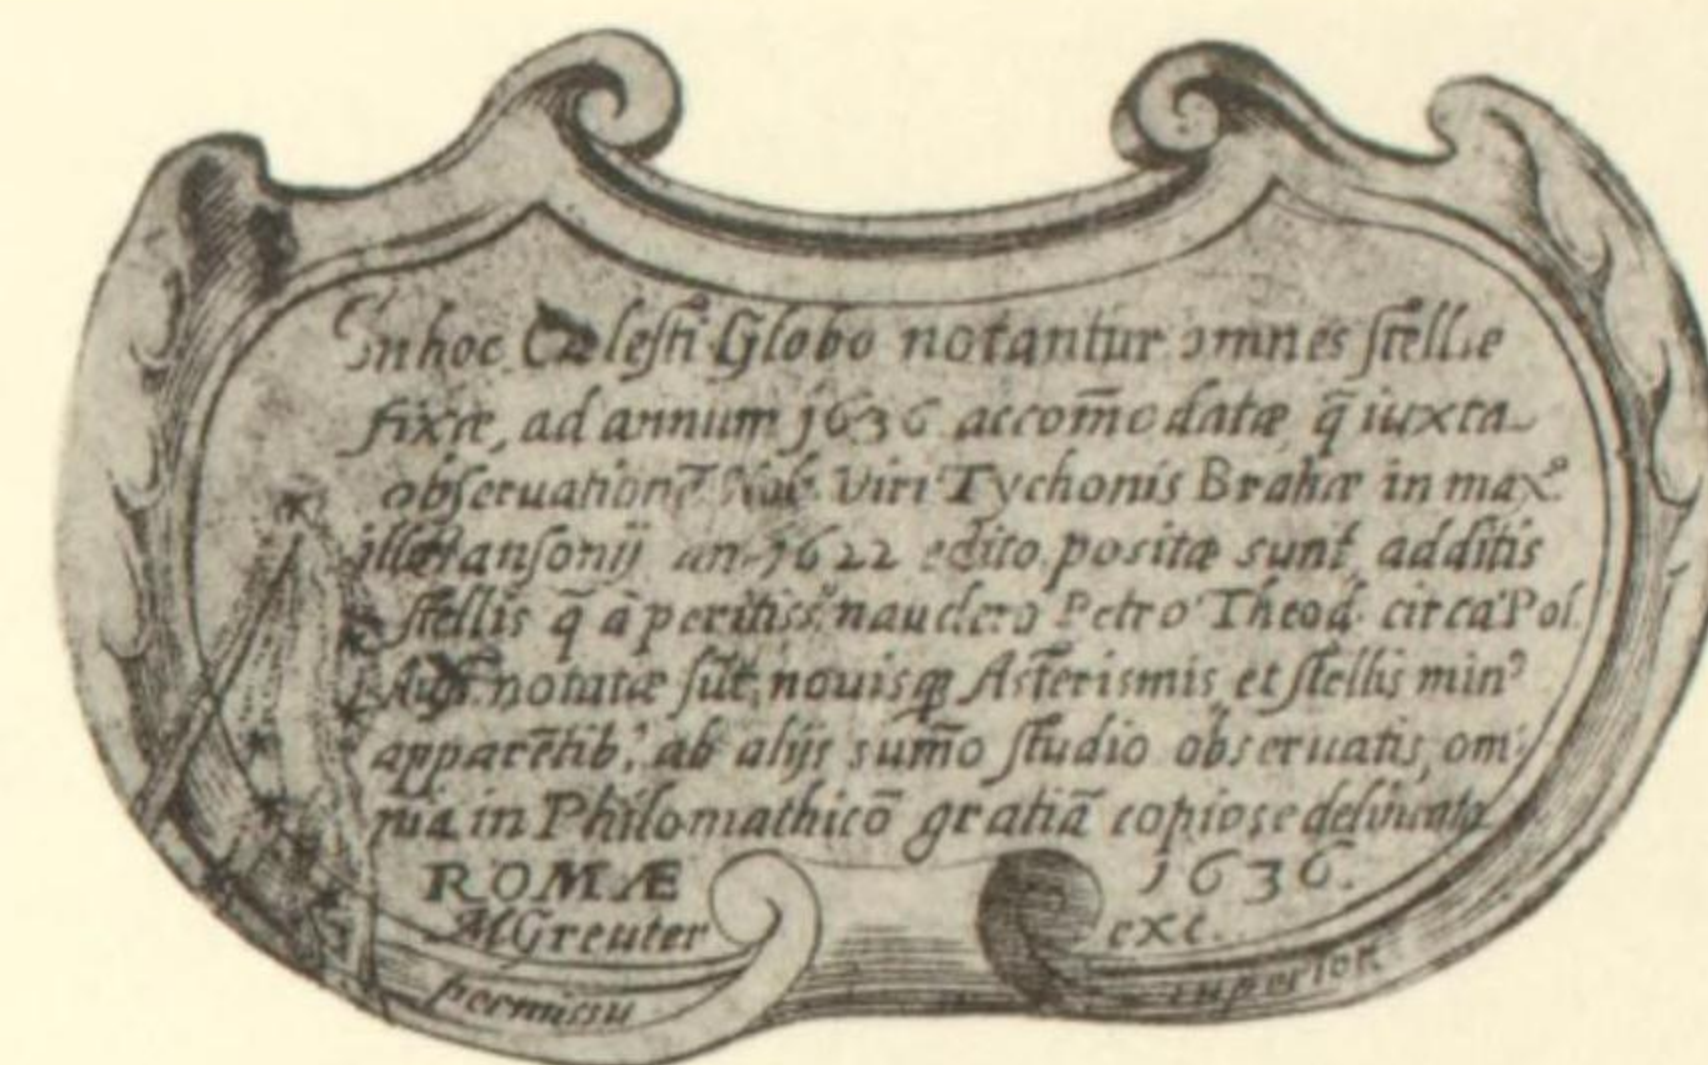 In hoc Cælesti Globo notantur omnes stellæ
fixæ, ad annum 1636 accom̄odatæ, q̄ iuxta
obseruationē Nob. Viri Tychonis Brahæ in max.º
illo Iansonij an. 1622 edito positæ sunt, additis
stellis q̄ à peritiss.º nauclero Petro Theod. circa Pol.
notatæ sūt, nouisqꝫ Asterismis, et stellis minꝰ
apparētibꝰ, ab alijs sum̄o studio obseruatis, om-
nia in Philomathicō gratiā copiose delineata
ROMÆ 1636.
MGreuter exc.
permissu superior.